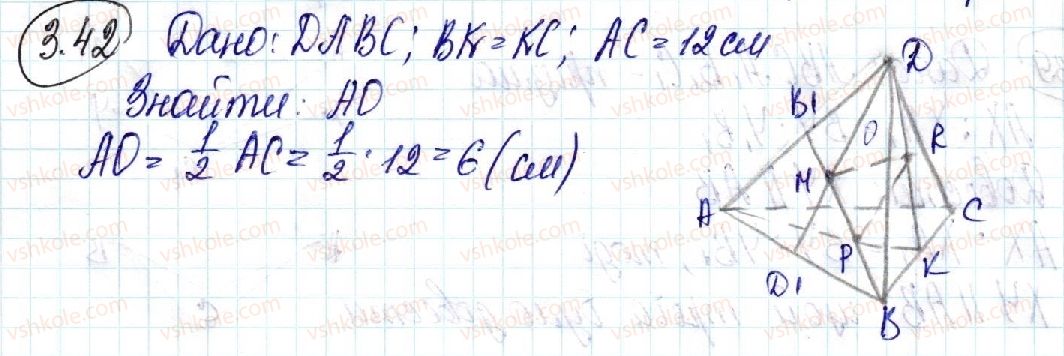 3.42 Дано: DABC; BK=KC; AC=12см
Знайти: AO
AO= 1/2 AC= 1/2 · 12=6(см)
D
B1
O
R
M
A
C
P
K
D1
B
vshkole.com